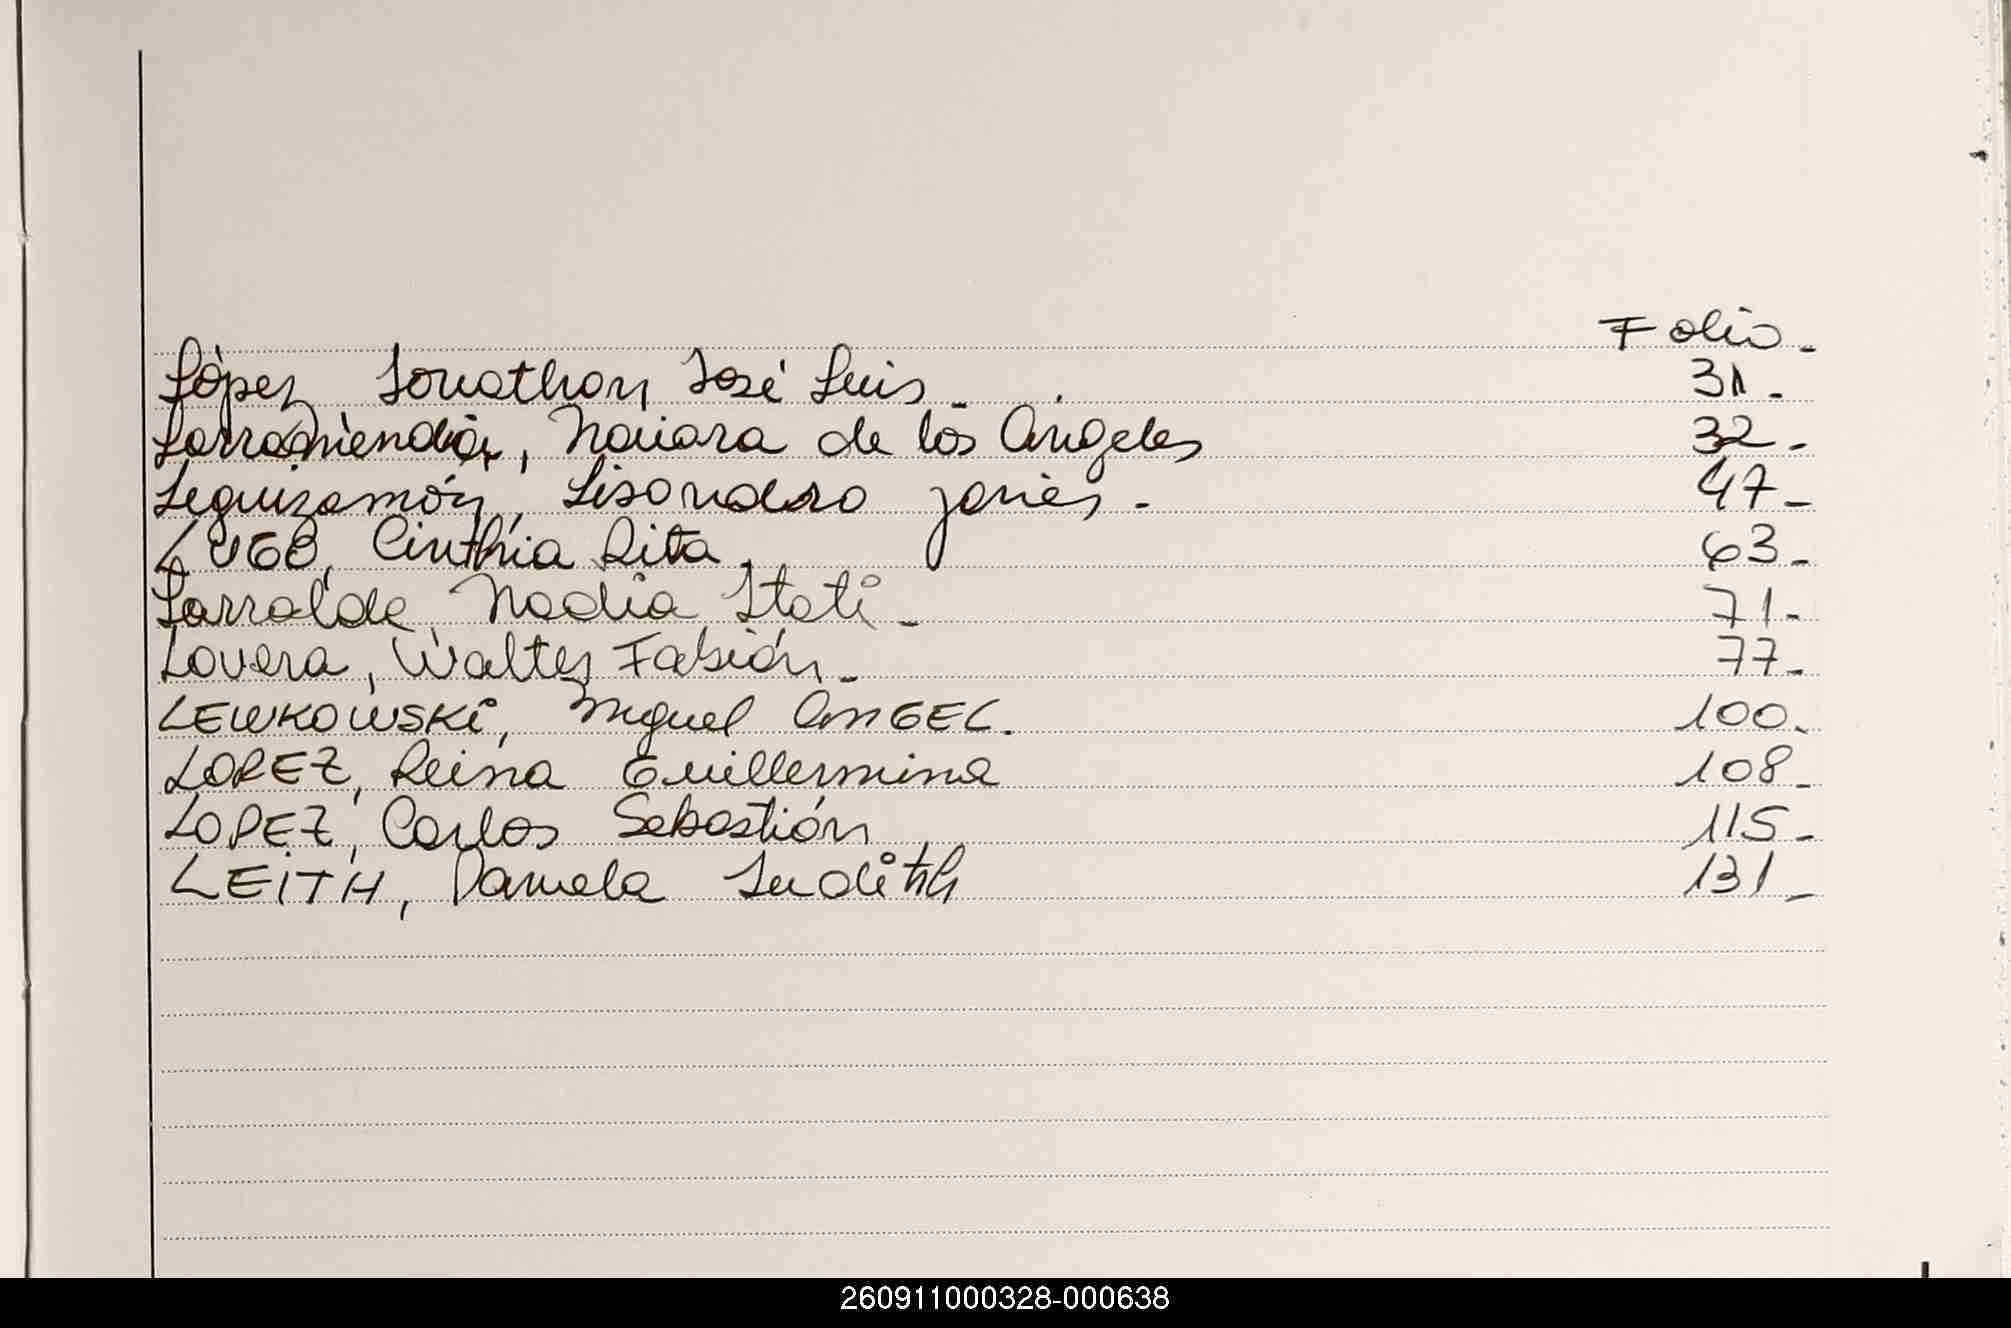 Folio -
López Jonathan José Luis - 31 -
Larramendia, Naiara de los Angeles 32 -
Leguizamón, Lisandro Javier - 47 -
LUGO, Cinthia Rita. 63 -
Larralde, Nadia Itati - 71 -
Lovera, Walter Fabián - 77 -
LEWKOWSKI, Miguel ANGEL. 100 -
LOPEZ, Reina Guillermina 108 -
LOPEZ, Carlos Sebastián 115 -
LEITH, Daniela Judith 131 -
260911000328-000638